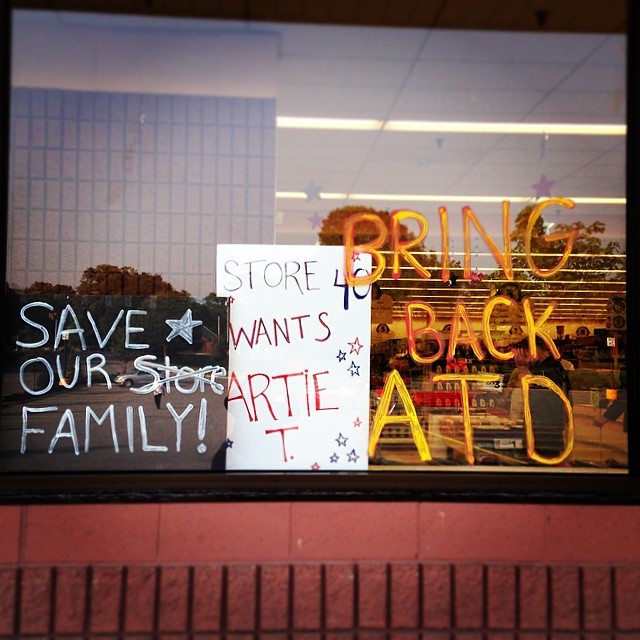 SAVE
OUR Store
FAMILY!
STORE 40
WANTS
ARTIE
T.
BRING
BACK
ATD